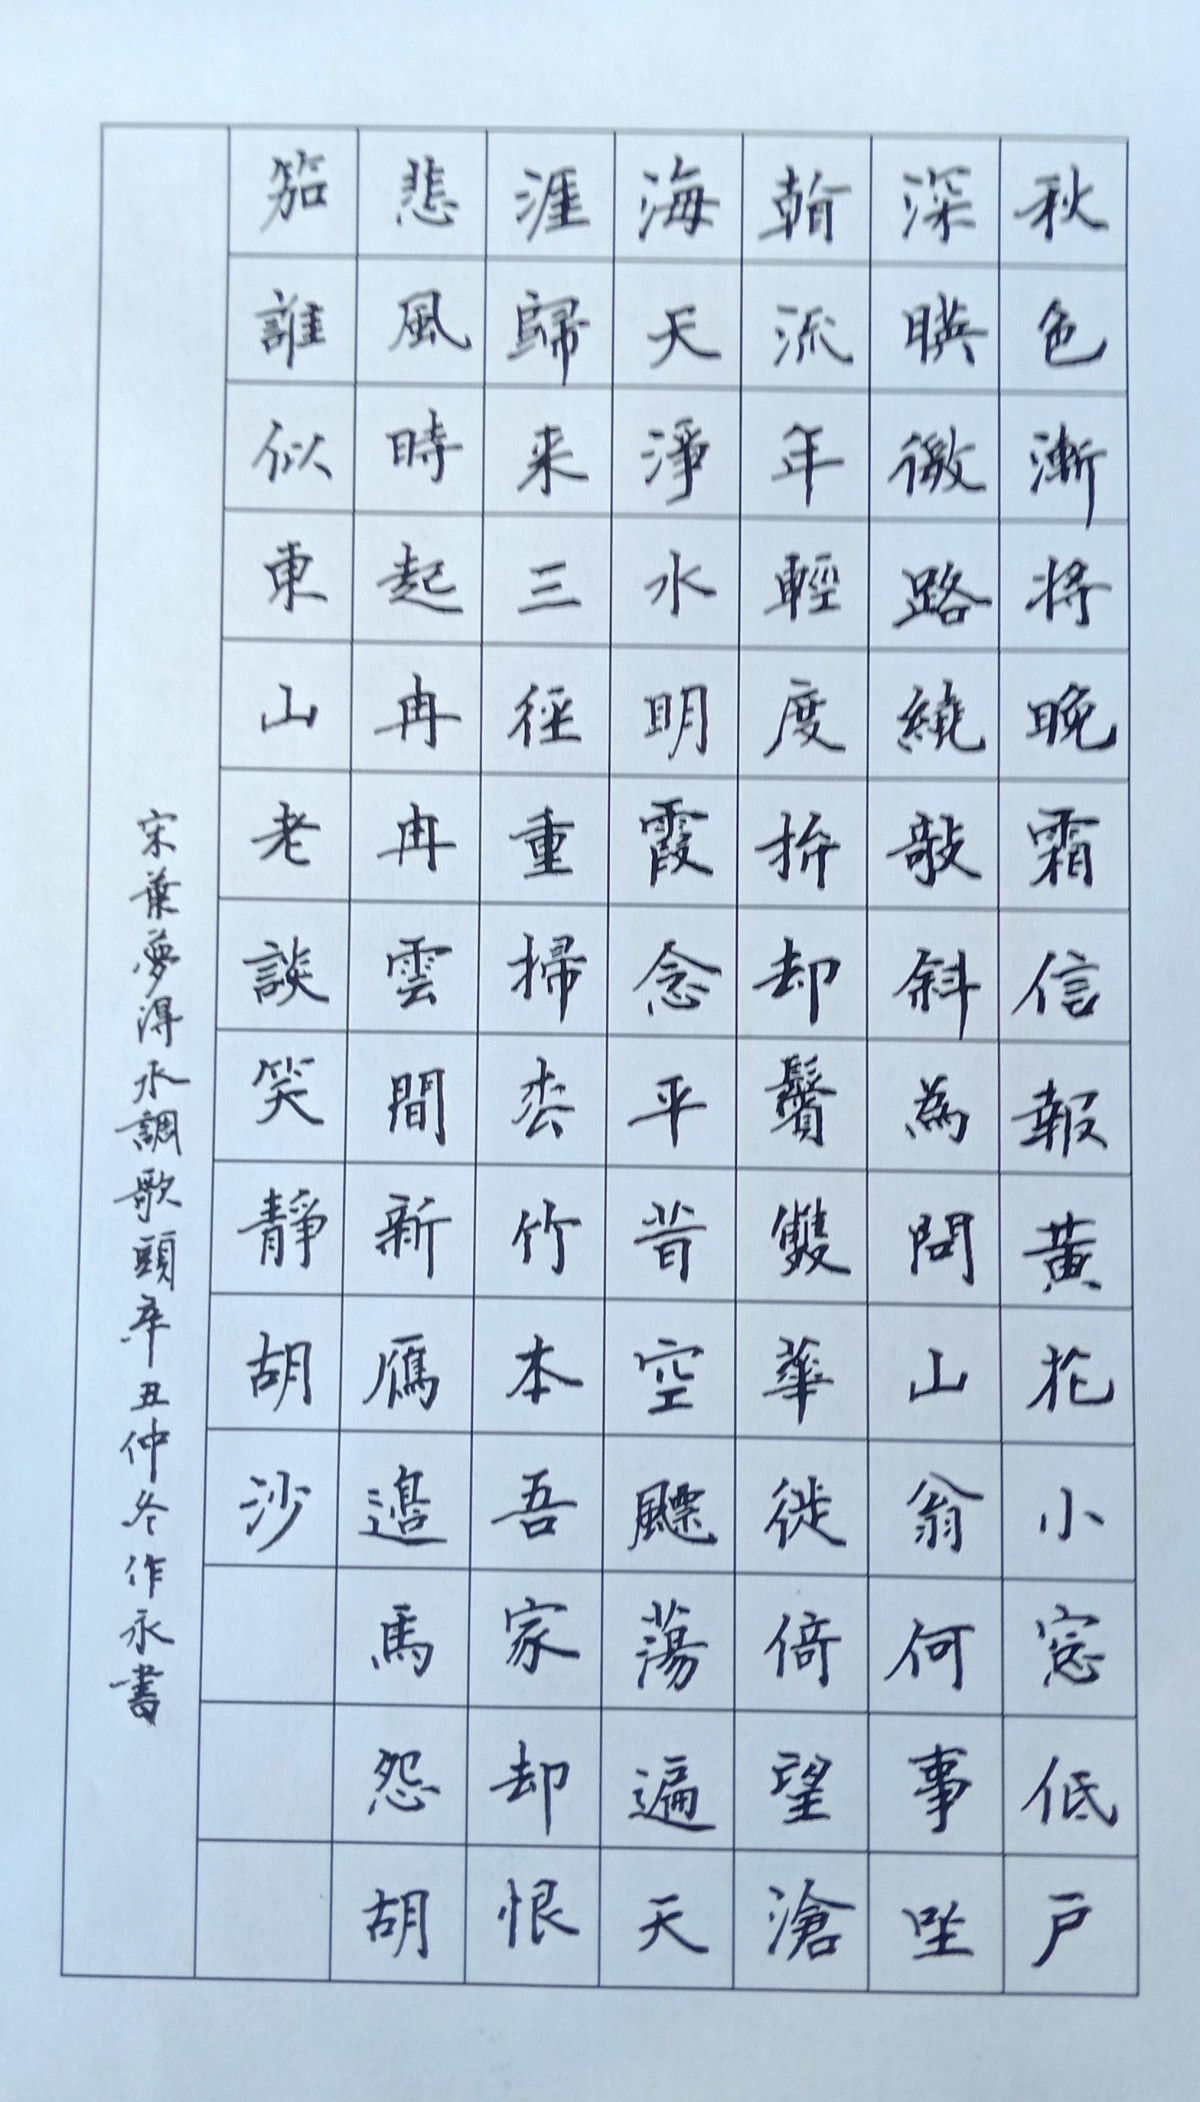 秋色漸將晚霜信報黃花小窓低戶
深暎微路繞敧斜為問山翁何事坐
看流年輕度拚却鬢雙華徙倚望滄
海天淨水明霞念平昔空飄蕩遍天
涯歸来三徑重掃松竹本吾家却恨
悲風時起冉冉雲間新鴈邉馬怨胡
笳誰似東山老談笑靜胡沙
宋葉夢得水調歌頭辛丑仲冬作永書